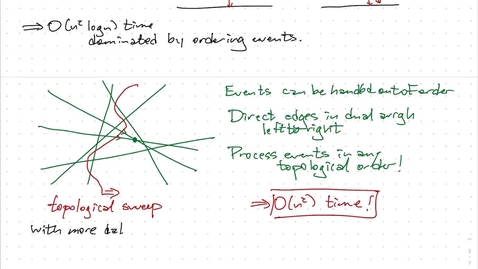 ⇒ O(n² log n) time
dominated by ordering events.
Events can be handled out of order
Direct edges in dual arrgh
left to right
Process events in any
topological order!
topological sweep
⇒ O(n²) time!
with more dat